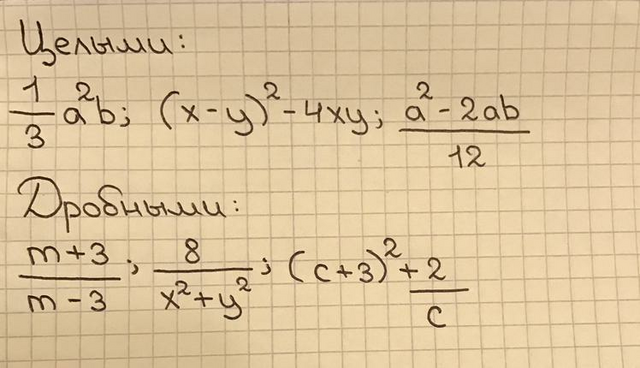 Целыми:
1/3 a²b; (x-y)²-4xy; (a²-2ab)/12
Дробными:
(m+3)/(m-3); 8/(x²+y²); (c+3)²+2/c